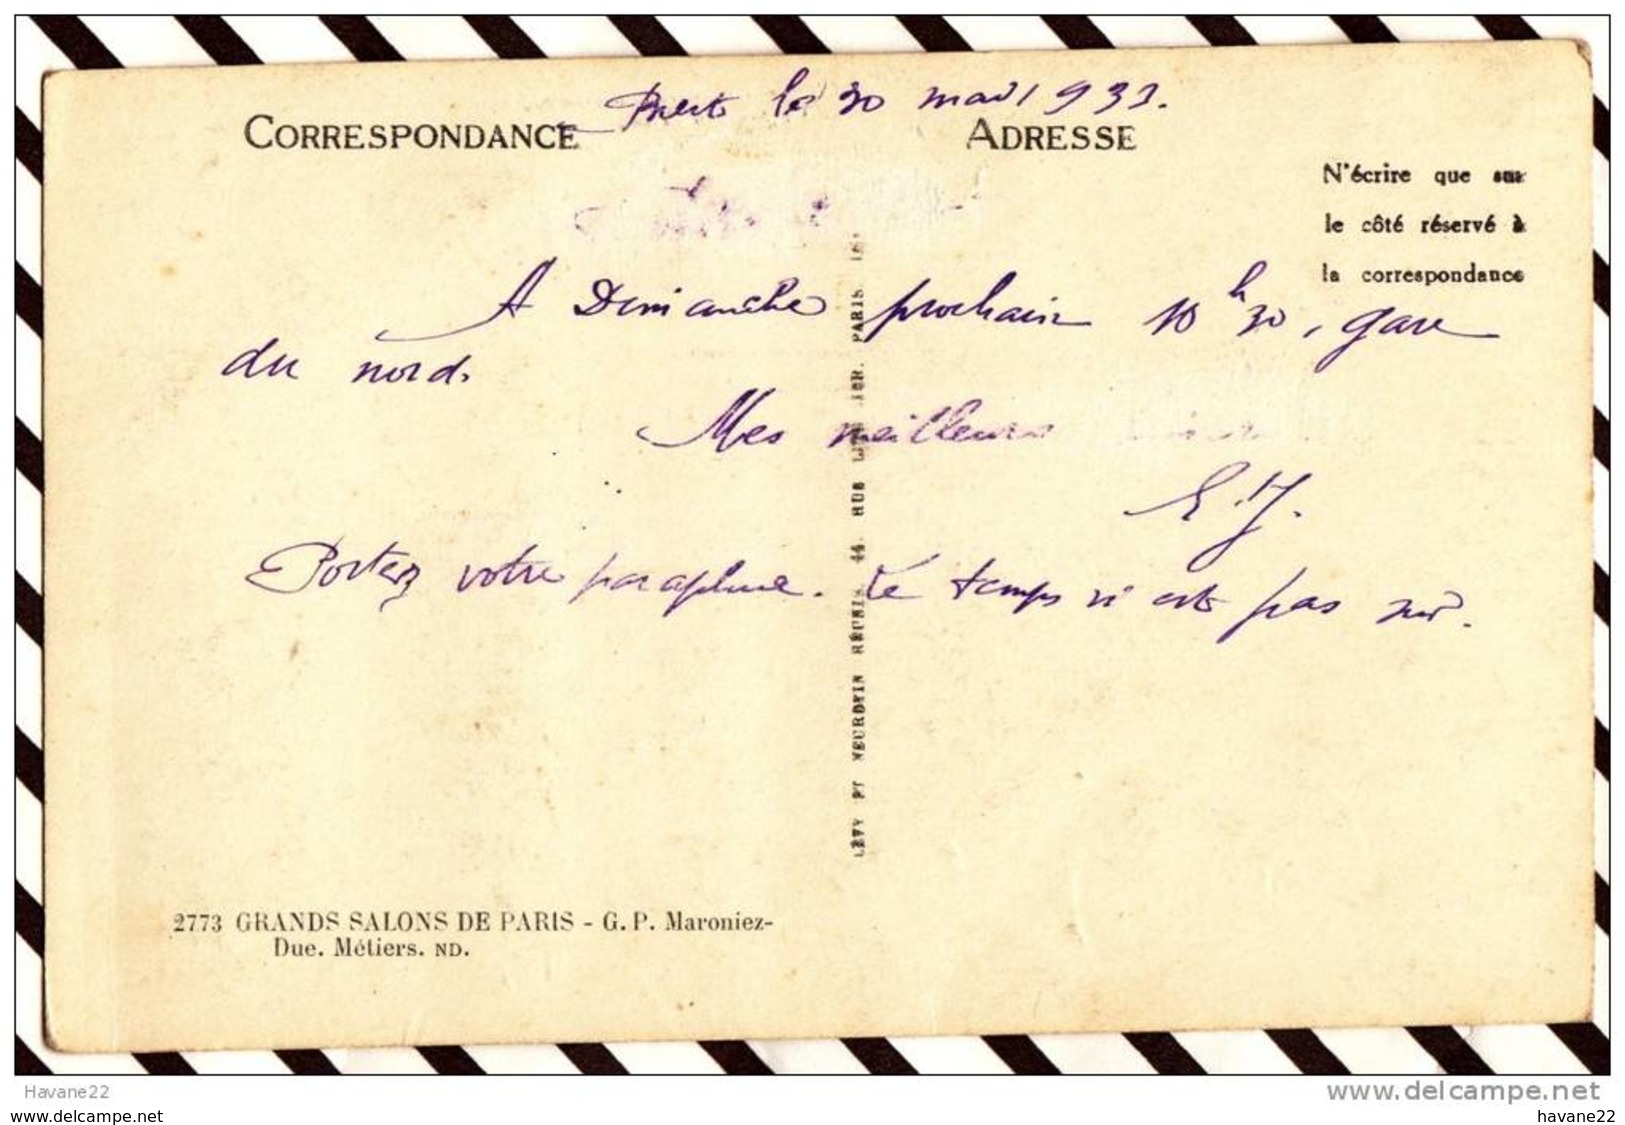 le 30 mai 1933.
CORRESPONDANCE
ADRESSE
N'écrire que sur
le côté réservé à
la correspondance
A Dimanche prochain 10 h 30, gare
du nord.
Mes meilleurs
E.J.
Portez votre parapluie. Le temps n'est pas sûr.
LÉVY ET NEURDEIN RÉUNIS, 44, RUE LETELLIER, PARIS
2773 GRANDS SALONS DE PARIS - G. P. Maroniez-
Due. Métiers. ND.
Havane22
www.delcampe.net
www.delcampe.net
havane22